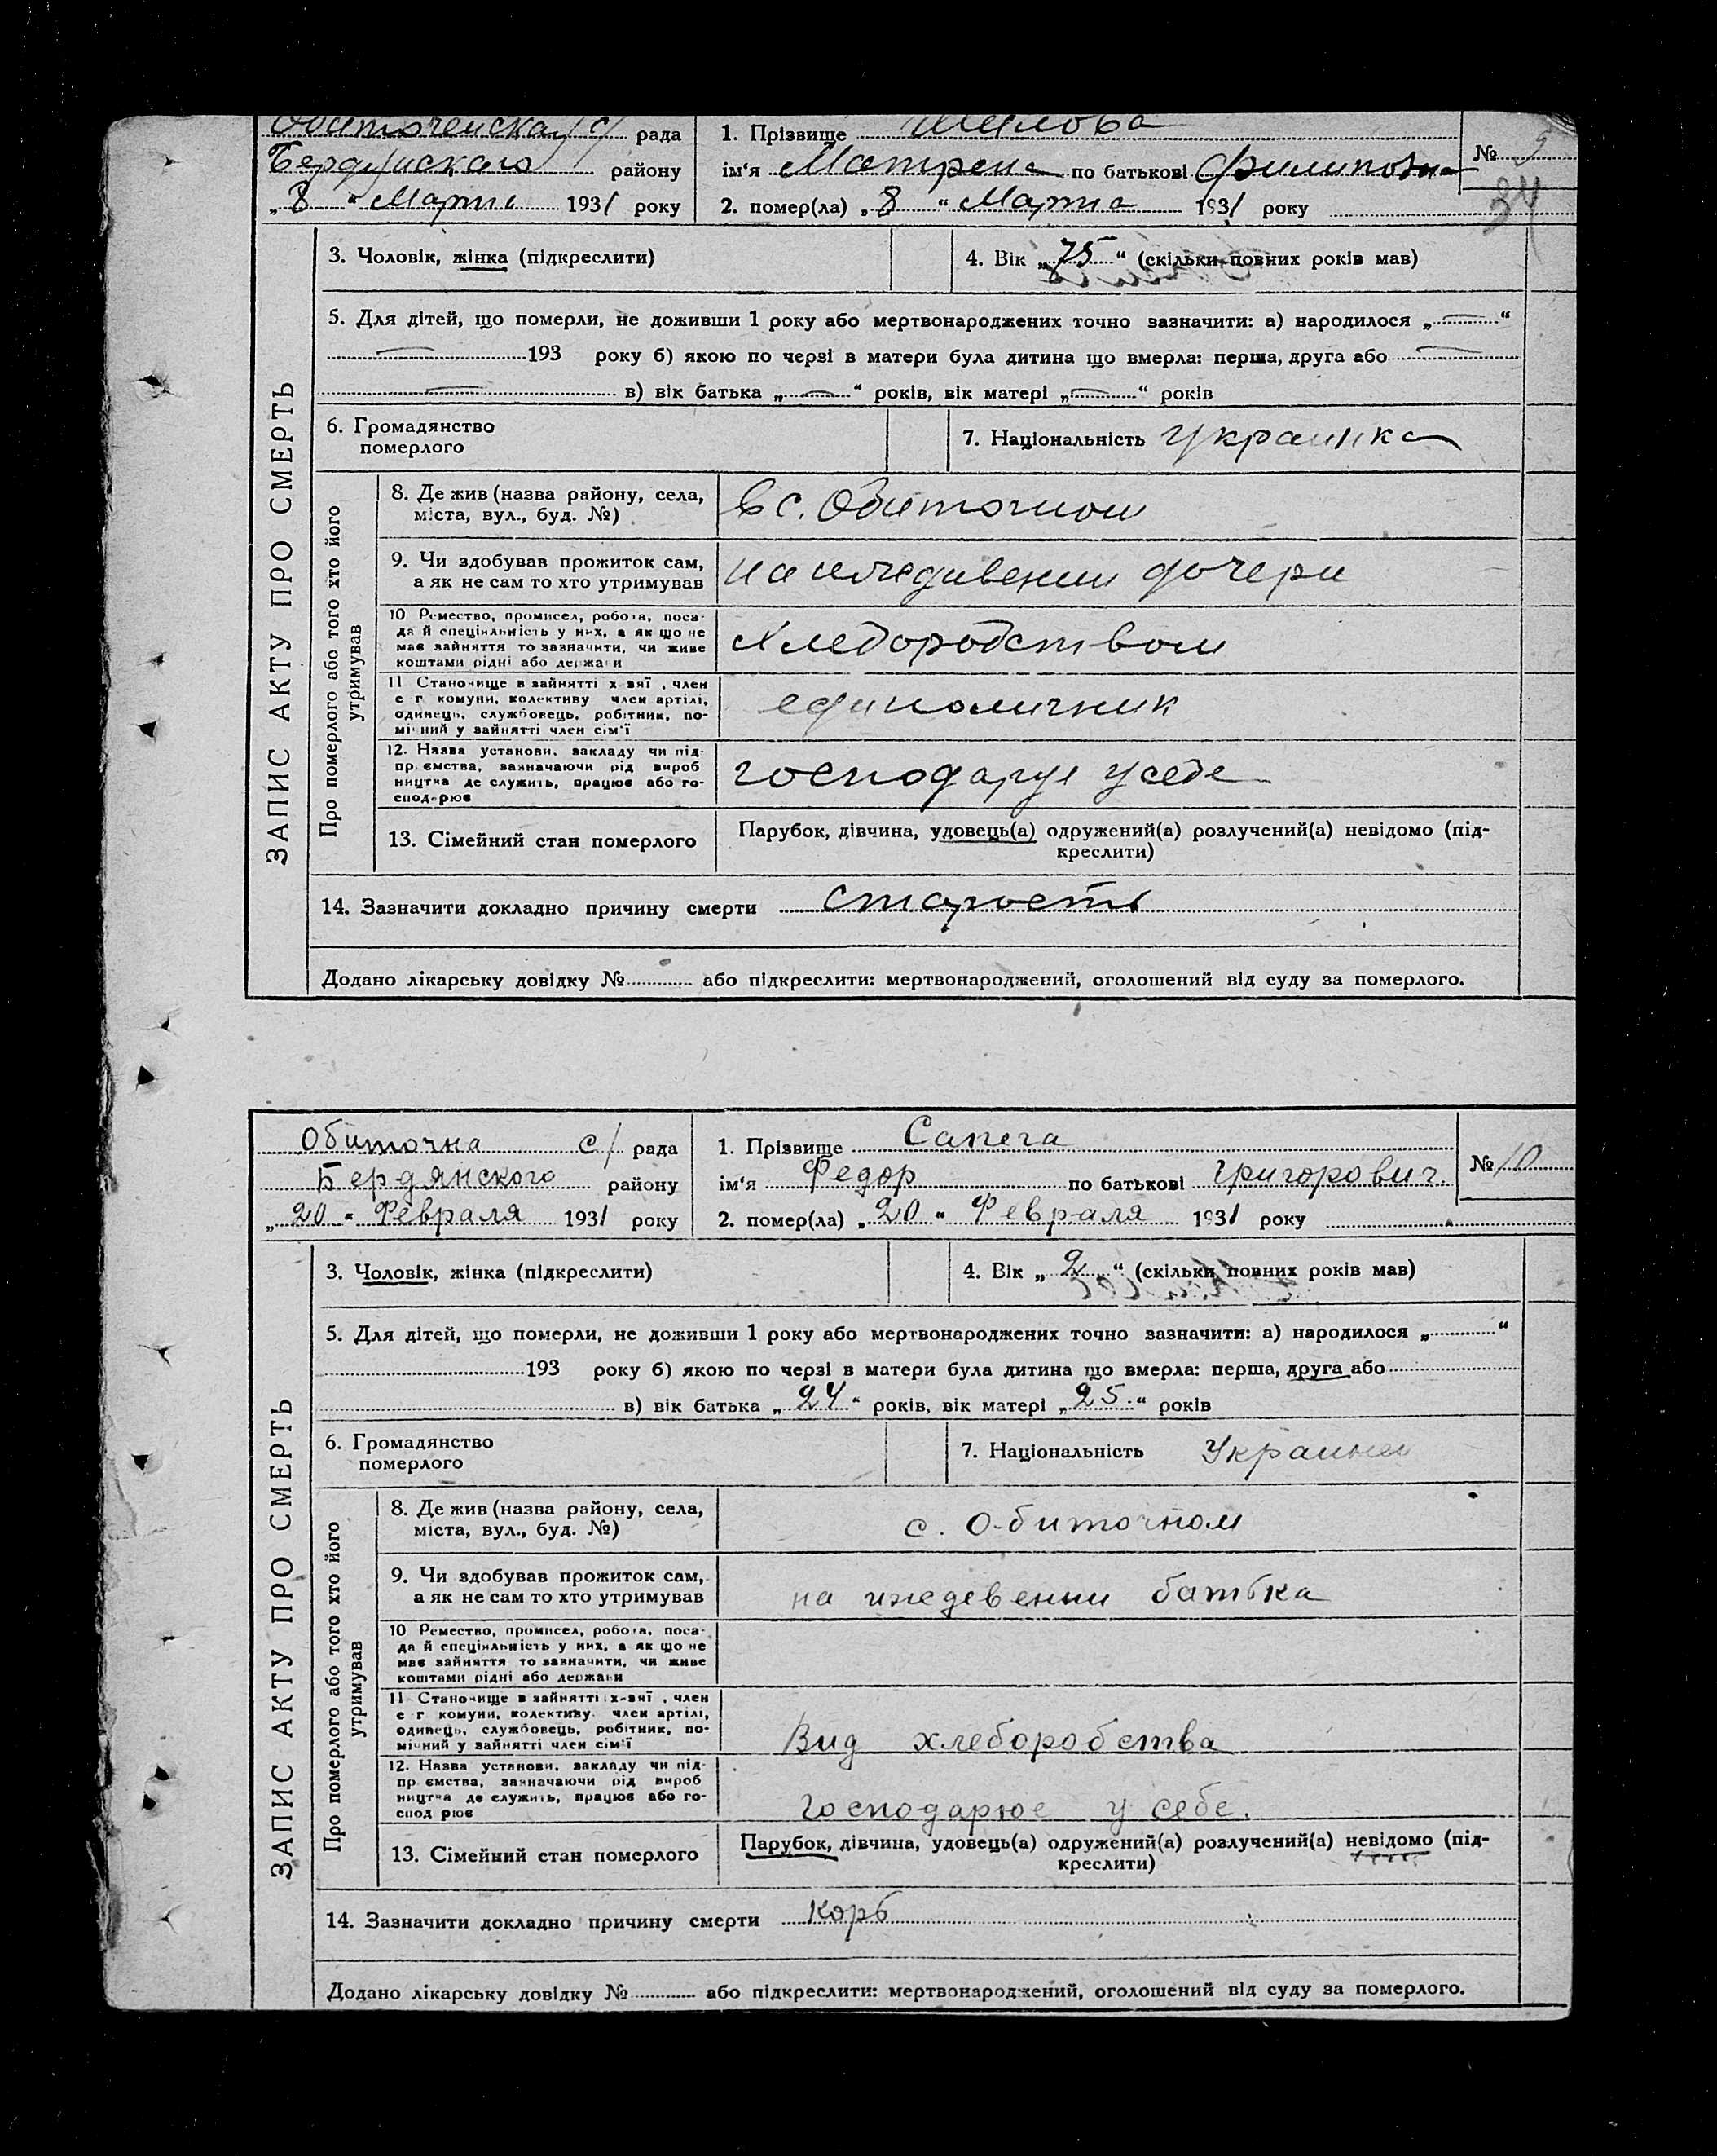 Обиточенская с/ рада
1. Прізвище Шилова
№ 5
Бердянского району
ім'я Матрена по батькові Филиповна
„ 8 “ Марта 1931 року
2. помер(ла) „ 8 “ Марта 1931 року
34
3. Чоловік, жінка (підкреслити)
4. Вік „ 75 “ (скільки повних років мав)
5. Для дітей, що померли, не доживши 1 року або мертвонароджених точно зазначити: а) народилося „ — “
— 193 року б) якою по черзі в матери була дитина що вмерла: перша, друга або —
— в) вік батька „ — “ років, вік матері „ — “ років
6. Громадянство
померлого
7. Національність Украинка
ЗАПИС АКТУ ПРО СМЕРТЬ
Про померлого або того хто його
утримував
8. Де жив (назва району, села,
міста, вул., буд. №)
в с. Обиточном
9. Чи здобував прожиток сам,
а як не сам то хто утримував
на иждивении дочери
10 Ремество, промисел, робота, поса-
да й спеціяльність у них, а як що не
має зайняття то зазначити, чи живе
коштами рідні або держави
Хлеборобством
11 Становище в зайнятті х-вні, член
с г комуни, колективу член артілі,
одинець, службовець, робітник, по-
мічний у зайнятті член сім'ї
единоличник
12. Назва установи, закладу чи під-
приємства, зазначаючи рід вироб
ництва де служить, працює або го-
сподарює
господарує у себе
13. Сімейний стан померлого
Парубок, дівчина, удовець(а) одружений(а) розлучений(а) невідомо (під-
креслити)
14. Зазначити докладно причину смерти старость
Додано лікарську довідку № або підкреслити: мертвонароджений, оголошений від суду за померлого.
Обиточна с/ рада
1. Прізвище Сапега
№ 10
Бердянского району
ім'я Федор по батькові Григорович.
„ 20 “ Февраля 1931 року
2. помер(ла) „ 20 “ Февраля 1931 року
3. Чоловік, жінка (підкреслити)
4. Вік „ 2 “ (скільки повних років мав)
5. Для дітей, що померли, не доживши 1 року або мертвонароджених точно зазначити: а) народилося „ “
193 року б) якою по черзі в матери була дитина що вмерла: перша, друга або
в) вік батька „ 24 “ років, вік матері „ 25. “ років
6. Громадянство
померлого
7. Національність
ЗАПИС АКТУ ПРО СМЕРТЬ
Про померлого або того хто його
утримував
8. Де жив (назва району, села,
міста, вул., буд. №)
с. Обиточном
9. Чи здобував прожиток сам,
а як не сам то хто утримував
на ижедевении батька
10 Ремество, промисел, робота, поса-
да й спеціяльність у них, а як що не
має зайняття то зазначити, чи живе
коштами рідні або держави
11 Становище в зайнятті х-вні, член
с г комуни, колективу член артілі,
одинець, службовець, робітник, по-
мічний у зайнятті член сім'ї
Вид хлеборобства
12. Назва установи, закладу чи під-
приємства, зазначаючи рід вироб
ництва де служить, працює або го-
сподарює
господарює у себе.
13. Сімейний стан померлого
Парубок, дівчина, удовець(а) одружений(а) розлучений(а) невідомо (під-
креслити)
14. Зазначити докладно причину смерти Корь
Додано лікарську довідку № або підкреслити: мертвонароджений, оголошений від суду за померлого.